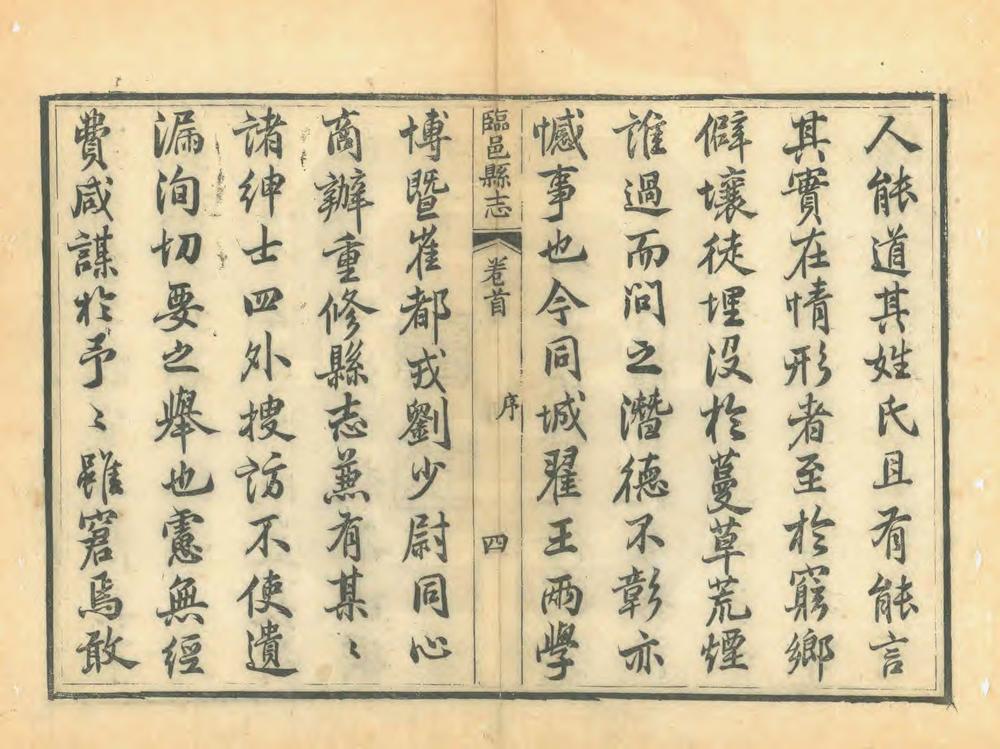 人能道其姓氏且有能言
其實在情形者至於窮鄉
僻壤徒埋没於蔓草荒煙
誰過而问之潛德不彰亦
憾事也今同城翟王兩學
臨邑縣志
卷首
序
四
博暨崔都戎劉少尉同心
商辦重修縣志兼有某〻
諸紳士四外搜訪不使遺
漏洵切要之舉也慮無經
費咸謀於予〻雖窘焉敢